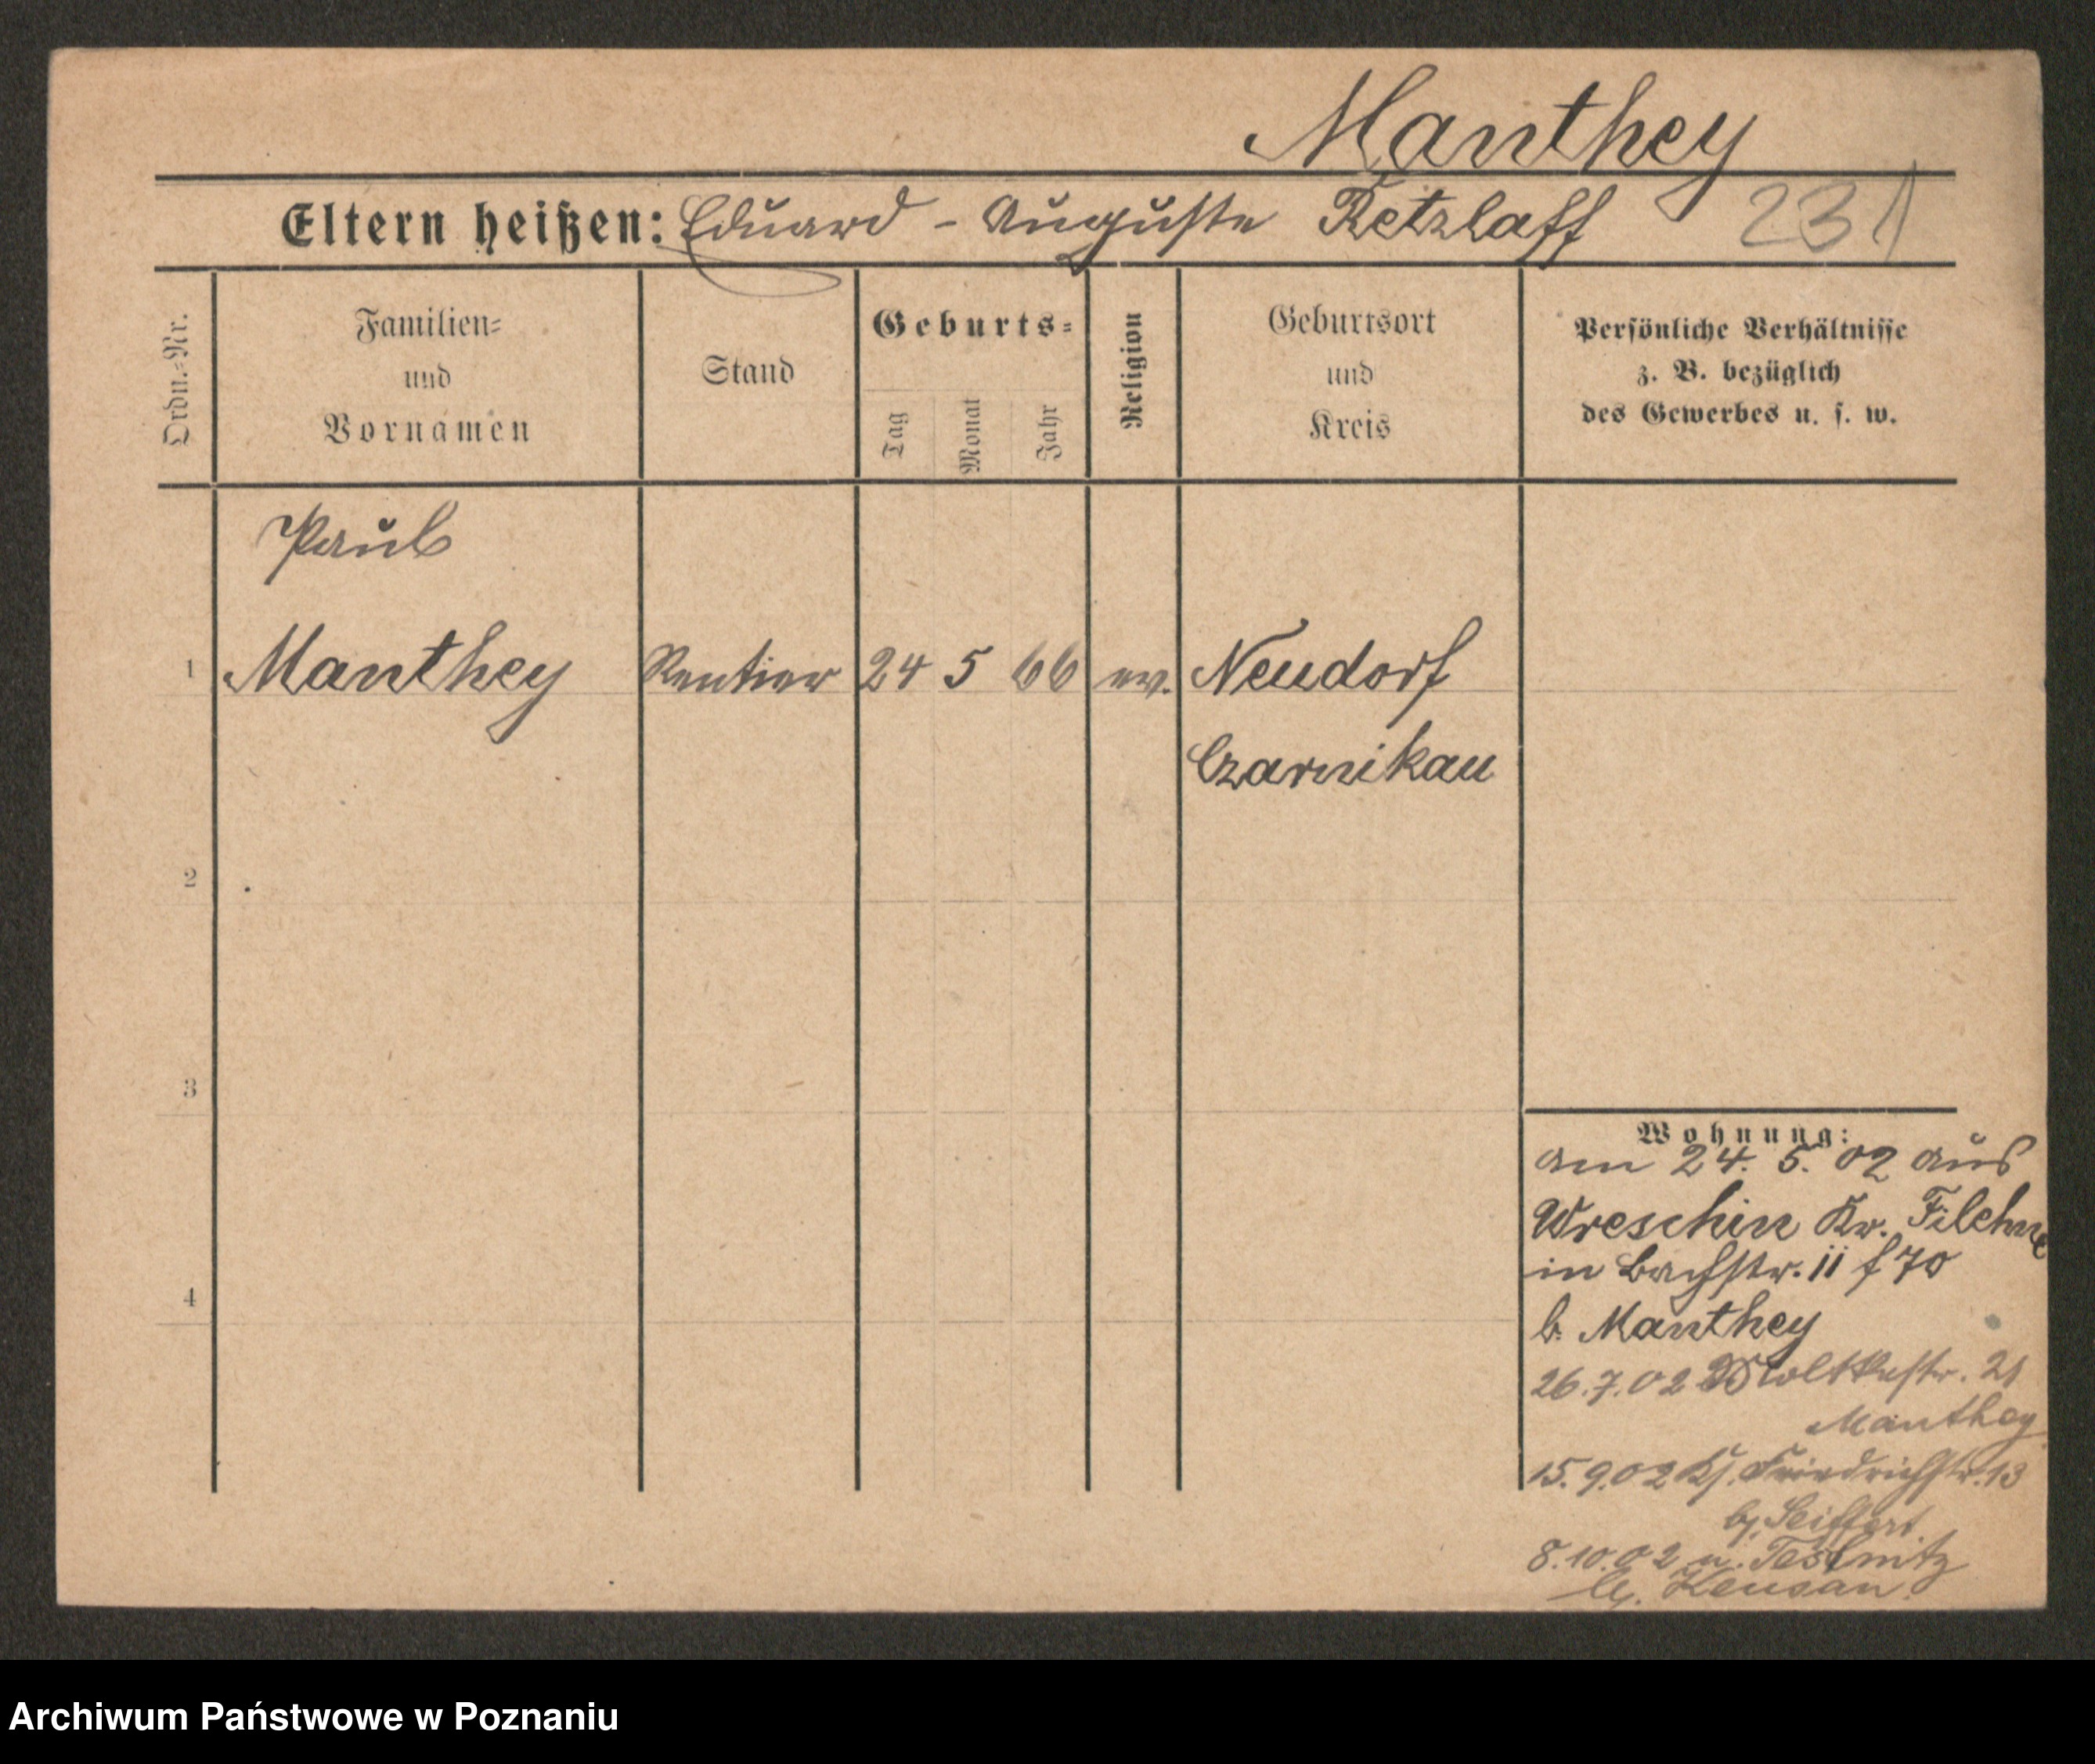 Manthey
Eltern heißen: Eduard - Auguste Retzlaff 231
Ordn.-Nr.
Familien-
und
Vornamen
Stand
Geburts-
Tag
Monat
Jahr
Religion
Geburtsort
und
Kreis
Persönliche Verhältnisse
z. B. bezüglich
des Gewerbes u. s. w.
Paul
1 Manthey Rentier 24 5 66 ev. Neudorf
Czarnikau
2
3
4
Wohnung:
am 24. 5. 02 aus
Wreschin Kr. Filehne
in Bachstr. 11 f 70
b. Manthey
26.7.02 Moltkestr. 21
Manthey
15.9.02 Friedrichstr. 13
b. Seiffert.
8.10.02 n.